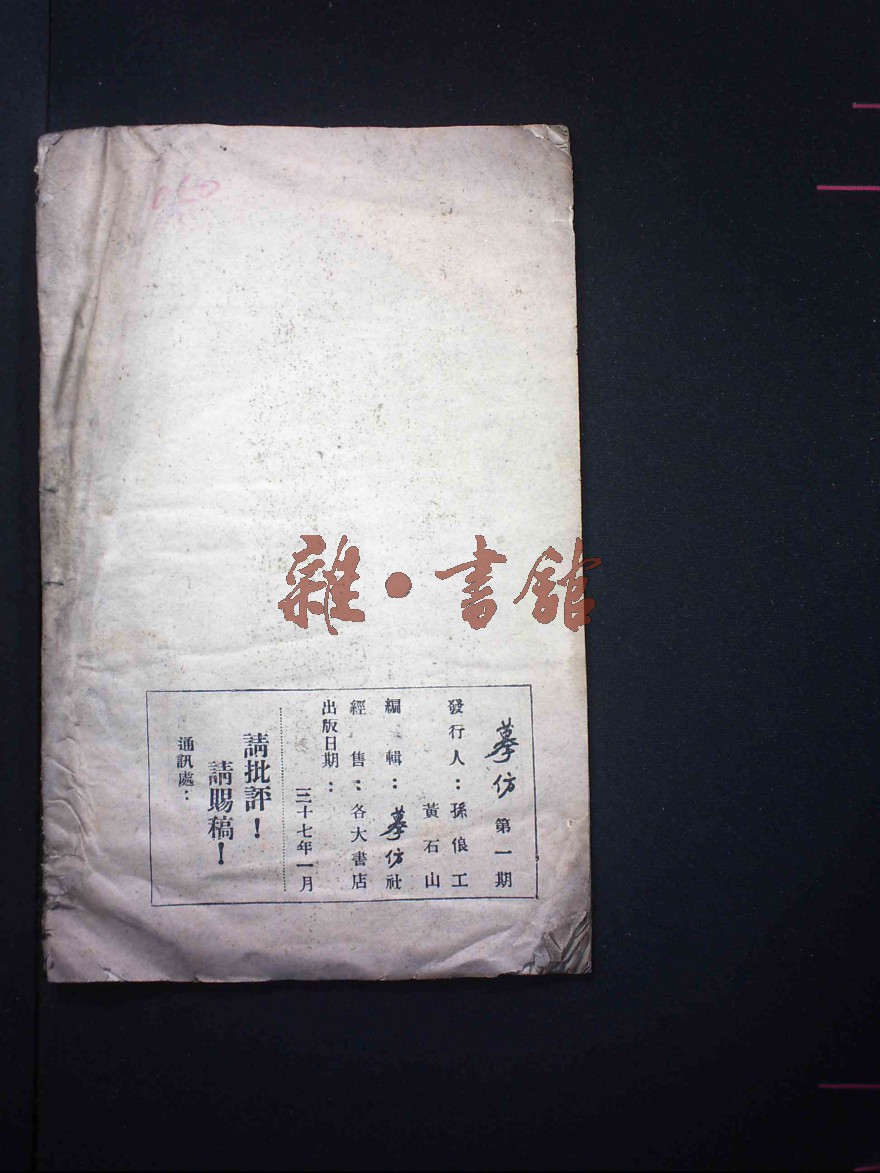 雜·書館
摹仿 第一期
發行人：孫俍工
黃石山
編輯：摹仿社
經售：各大書店
出版日期：
三十七年一月
請批評！
請賜稿！
通訊處：